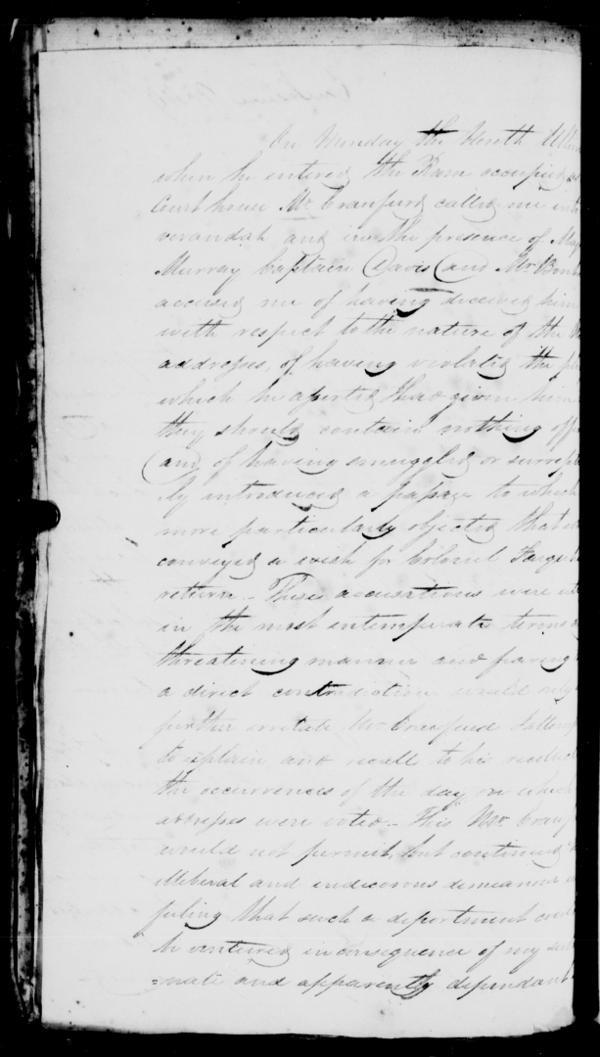 On Monday the
when he entered the Room occupied as
Court house Mr. Cranfurd called me
verandah and in the presence of
Murray Captain Davis and Mr
accused me of having deceived him
with respect to the nature of the
addresses, of having violated the
which he asserted I had given him
they should contain nothing
and of having smuggled or
ly introduced a passage to which
more particularly objected that
conveyed a wish for Colonel
return - These accusations were
in the most intemperate terms
threatening manner and
a direct contradiction would only
further irritate Mr Cranfurd I
to explain and recall to his
the occurrences of the day on which
addresses were voted - This Mr.
would not permit, but continued
illiberal and indecorous demeanor
feeling that such a deportment
be ventured in consequence of my
=nate and apparently dependant